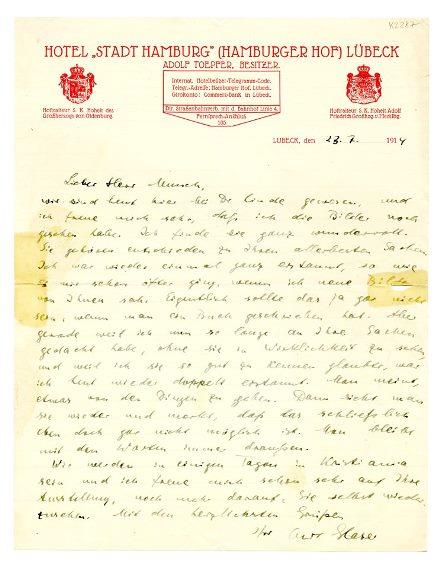 K2287
HOTEL „STADT HAMBURG" (HAMBURGER HOF) LÜBECK
ADOLF TOEPFER, BESITZER.
Internat. Hotelbesitzer-Telegramm-Code.
Telegr.-Adresse: Hamburger Hof, Lübeck.
Girokonto: Commerz-bank in Lübeck.
Dir. Straßenbahnverb. mit d. Bahnhof Linie 4.
Fernsprech-Anschluß
Hoftraiteur S. K. Hoheit des
Großherzogs von Oldenburg.
Hoftraiteur S. K. Hoheit Adolf
Friedrich Großhzg. v. Mecklbg.
LÜBECK, den 23. 7. 1914
Lieber Herr Munch,
wir sind heut hier bei Dr. Linde gewesen, und
ich freue mich sehr, daß ich die Bilder noch
gesehen habe. Ich finde sie ganz wundervoll.
Sie gehören entschieden zu Ihren allerbesten Sachen.
Ich war wieder einmal ganz erstaunt, so wie
es mir schon öfter ging, wenn ich neue Bilder
von Ihnen sah. Eigentlich sollte das ja gar nicht
sein, wenn man ein Buch geschrieben hat. Aber
gerade weil ich nun so lange an Ihre Sachen
gedacht habe, ohne sie in Wirklichkeit zu sehen
und weil ich sie so gut zu kennen glaubte, war
ich heut wieder doppelt erstaunt. Man meint,
etwas von den Dingen zu geben. Dann sieht man
sie wieder und merkt, daß das schließlich
eben doch gar nicht möglich ist. Man bleibt
mit den Worten immer draußen.
Wir werden in einigen Tagen in Kristiania
sein und ich freue mich schon sehr auf Ihre
Ausstellung, noch mehr darauf, Sie selbst wieder
zusehen. Mit den herzlichsten Grüßen
Ihr Curt Glaser